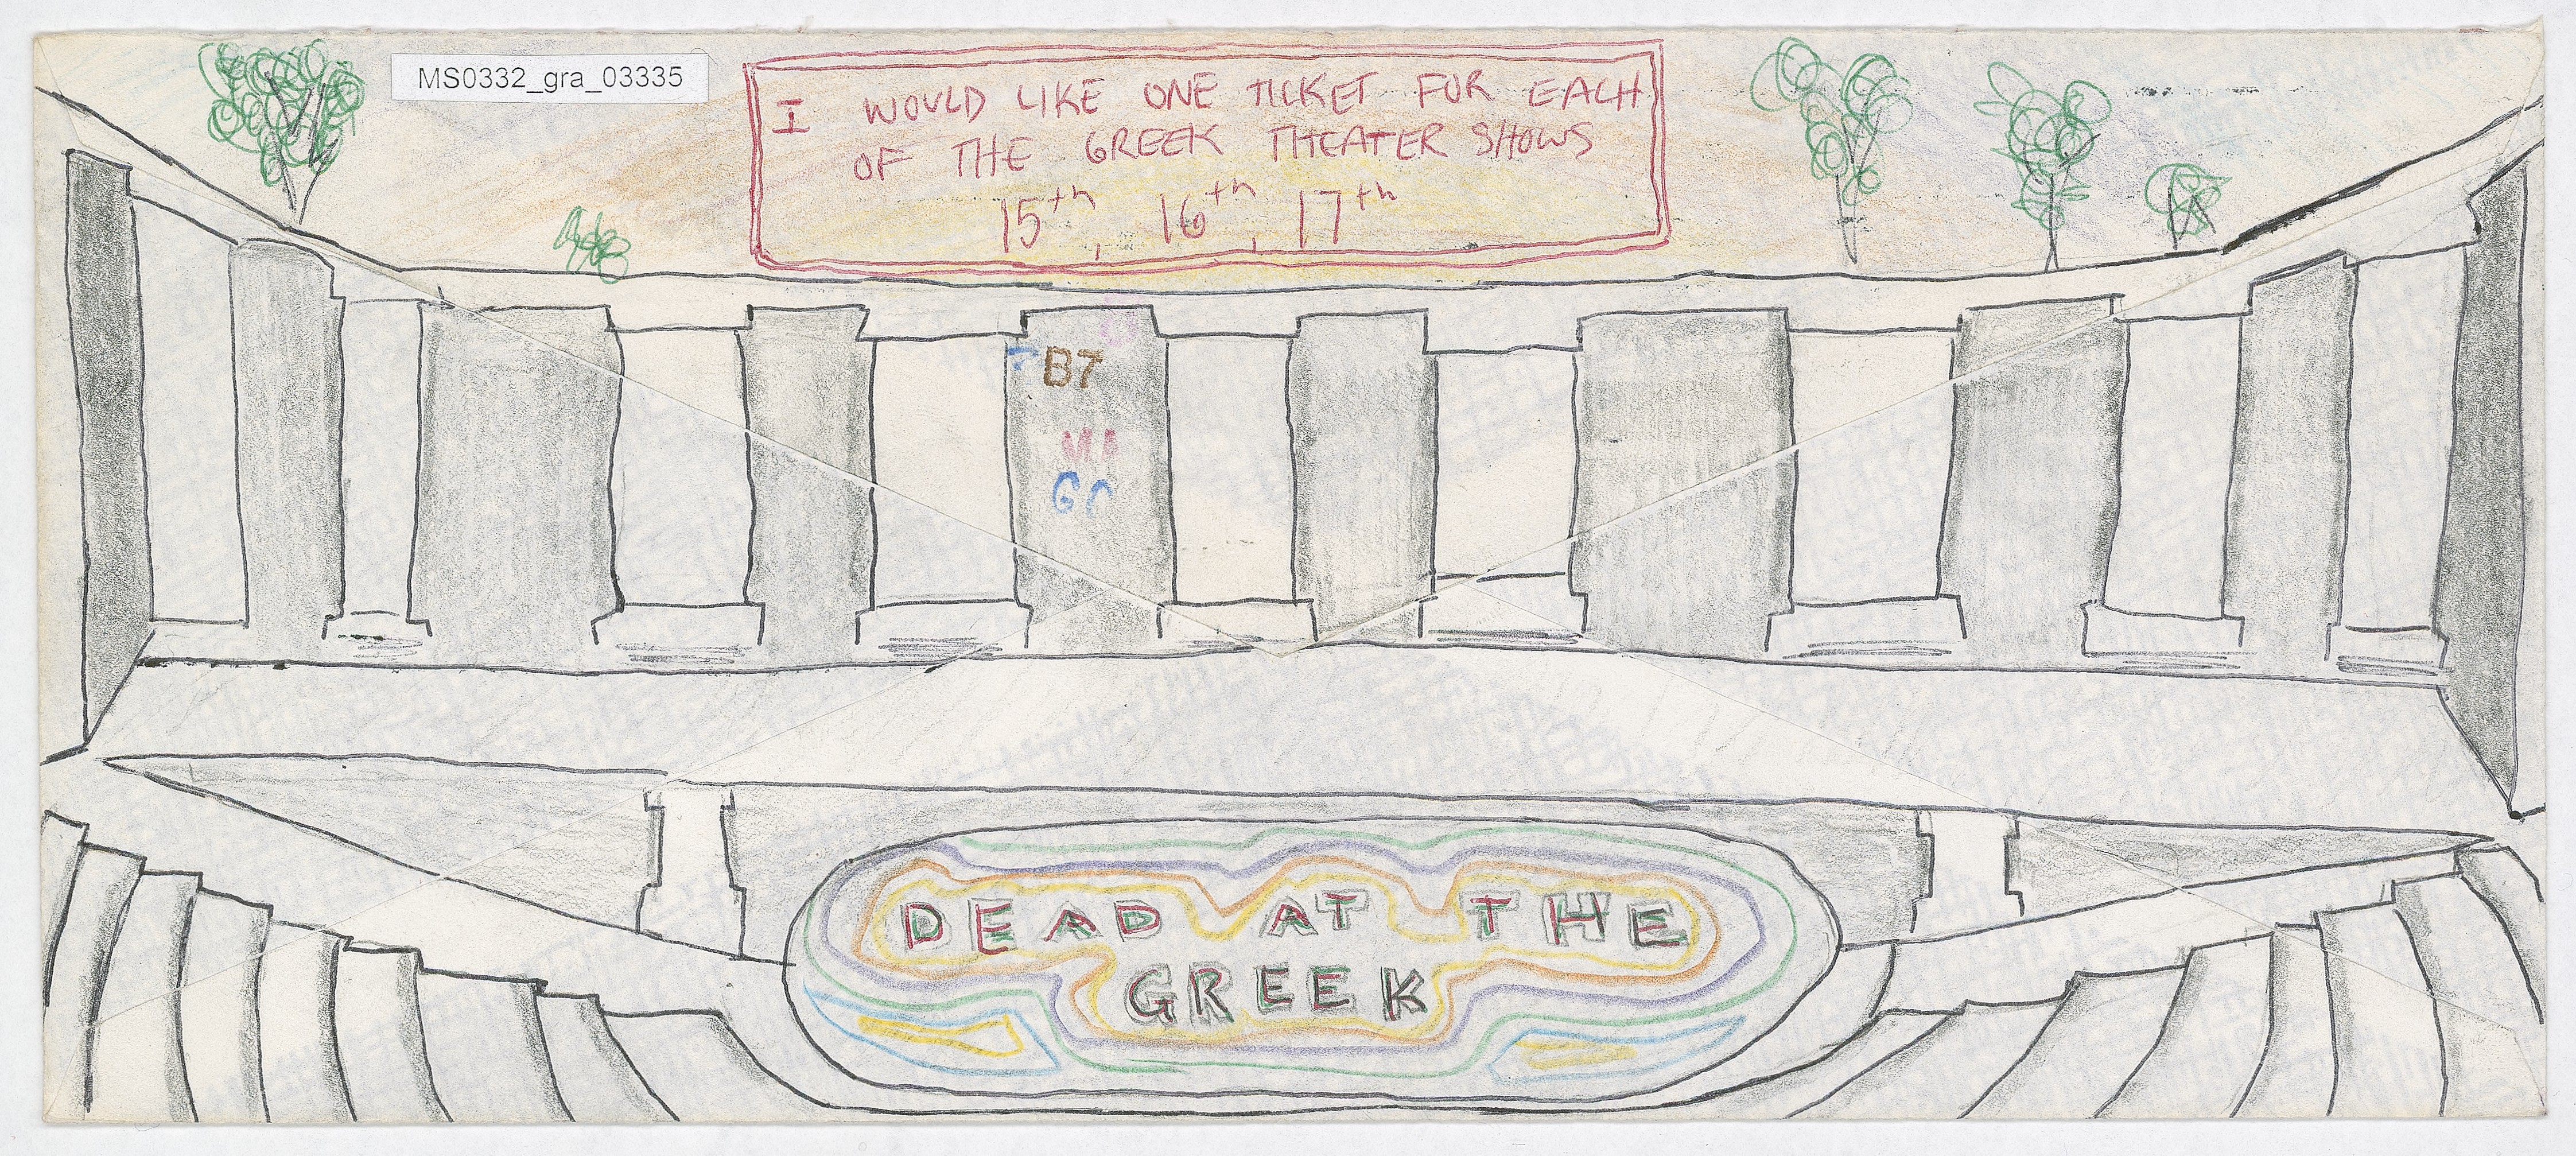 MS0332_gra_03335
I WOULD LIKE ONE TICKET FOR EACH
OF THE GREEK THEATER SHOWS
15th, 16th, 17th
B7
MA
DEAD AT THE
GREEK